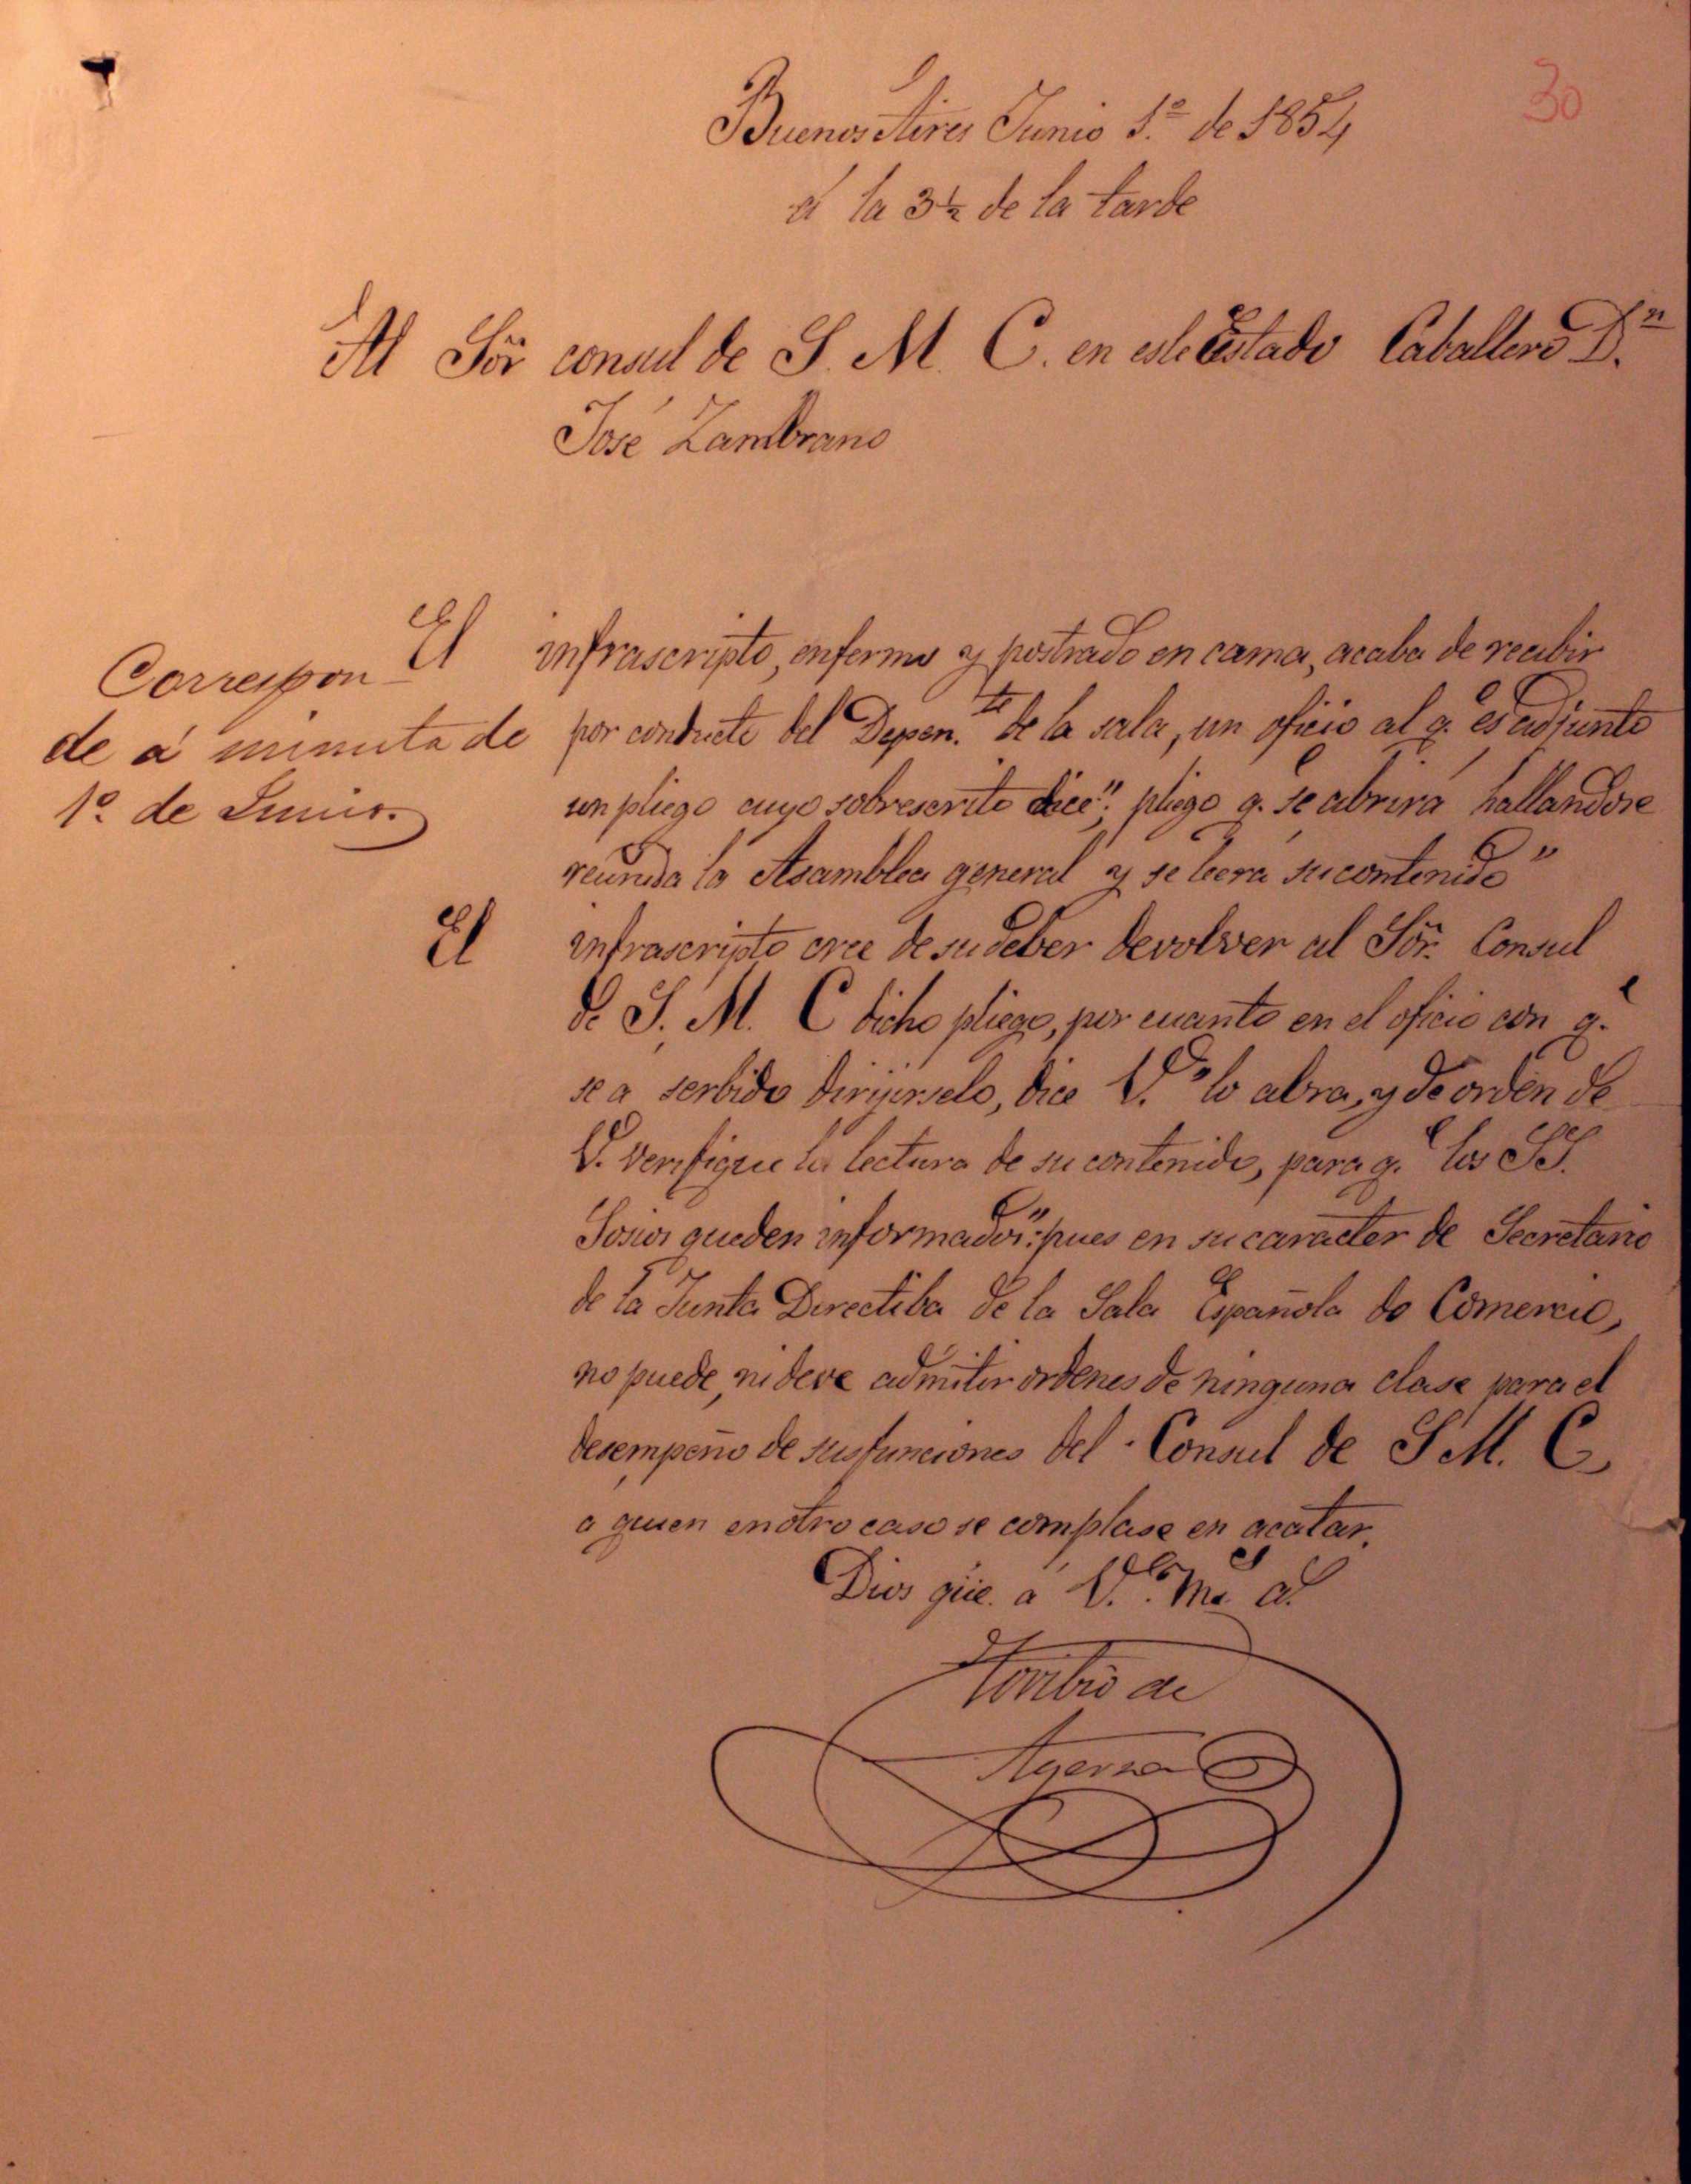 30
Buenos Aires Junio 1.º de 1854
á la 3½ de la tarde
Al Sõr consul de S. M. C. en este Estado Caballero D.n
José Zambrano
Correspon
de á minuta de
1º de Junio.
El infrascripto, enfermo y postrado en cama, acaba de recibir
por conducto del Depen.te de la sala, un oficio al q.e es adjunto
un pliego cuyo sobrescrito dice": pliego q.e se abrirá hallandose
reunida la Asamblea general y se leera su contenido"
El infrascripto cree de su deber devolver al Sõr. Consul
de S. M. C dicho pliego, por cuanto en el oficio con q.e
se a serbido dirijirselo, dice V. "lo abra, y de orden de
V. verifique la lectura de su contenido, para q.e los SS.
Socios queden informados": pues en su caracter de Secretario
de la Junta Directiba de la Sala Española de Comercio,
no puede, ni deve admitir ordenes de ninguna clase para el
desempeño de sus funciones del Consul de S M. C,
a quien en otro caso se complase en acatar.
Dios güe. a V. ms. as.
Toribio de
Ayerza